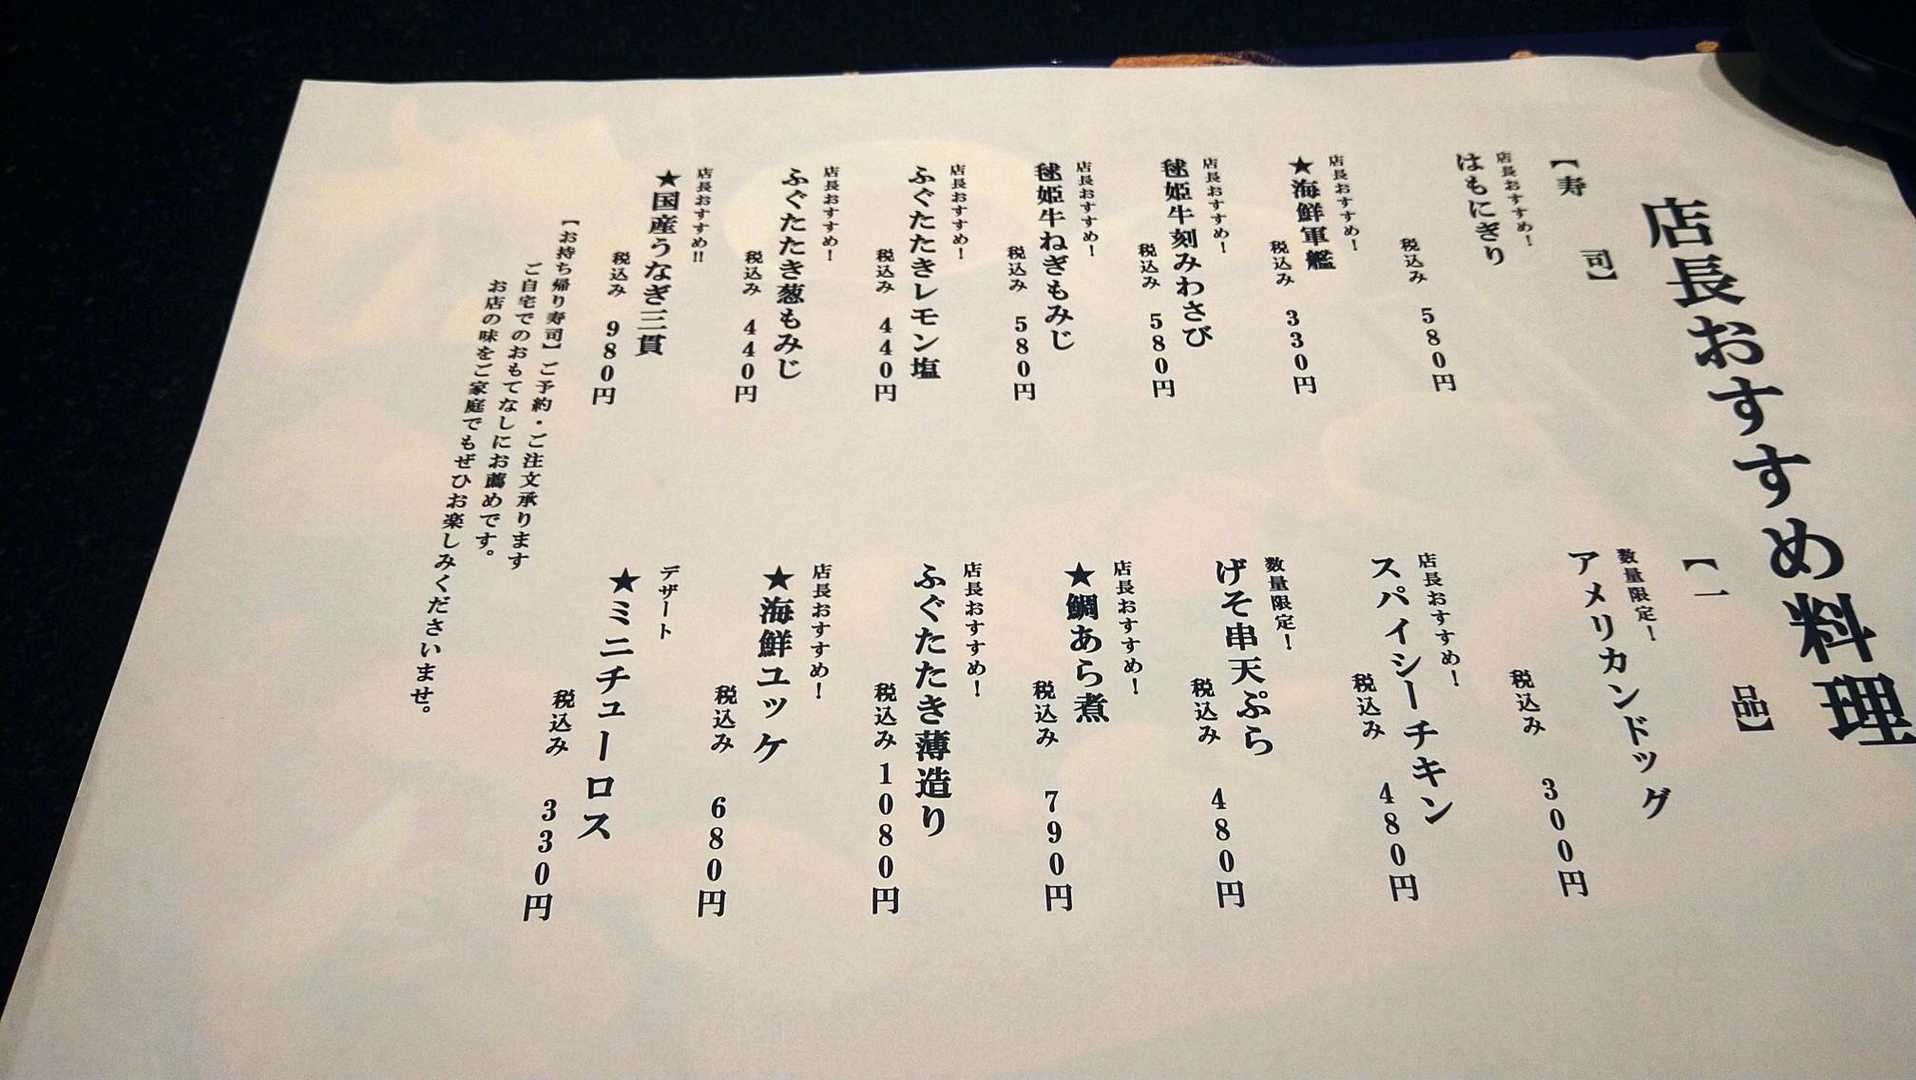 店長おすすめ料理
【寿　司】
店長おすすめ！
はもにぎり
税込み　580円
店長おすすめ！
★海鮮軍艦
税込み　330円
店長おすすめ！
毬姫牛刻みわさび
税込み　580円
店長おすすめ！
毬姫牛ねぎもみじ
税込み　580円
店長おすすめ！
ふぐたたきレモン塩
税込み　440円
店長おすすめ！
ふぐたたき葱もみじ
税込み　440円
店長おすすめ!!
★国産うなぎ三貫
税込み　980円
【お持ち帰り寿司】ご予約・ご注文承ります
ご自宅でのおもてなしにお薦めです。
お店の味をご家庭でもぜひお楽しみくださいませ。
【一　品】
数量限定！
アメリカンドッグ
税込み　300円
店長おすすめ！
スパイシーチキン
税込み　480円
数量限定！
げそ串天ぷら
税込み　480円
店長おすすめ！
★鯛あら煮
税込み　790円
店長おすすめ！
ふぐたたき薄造り
税込み　1080円
店長おすすめ！
★海鮮ユッケ
税込み　680円
デザート
★ミニチューロス
税込み　330円